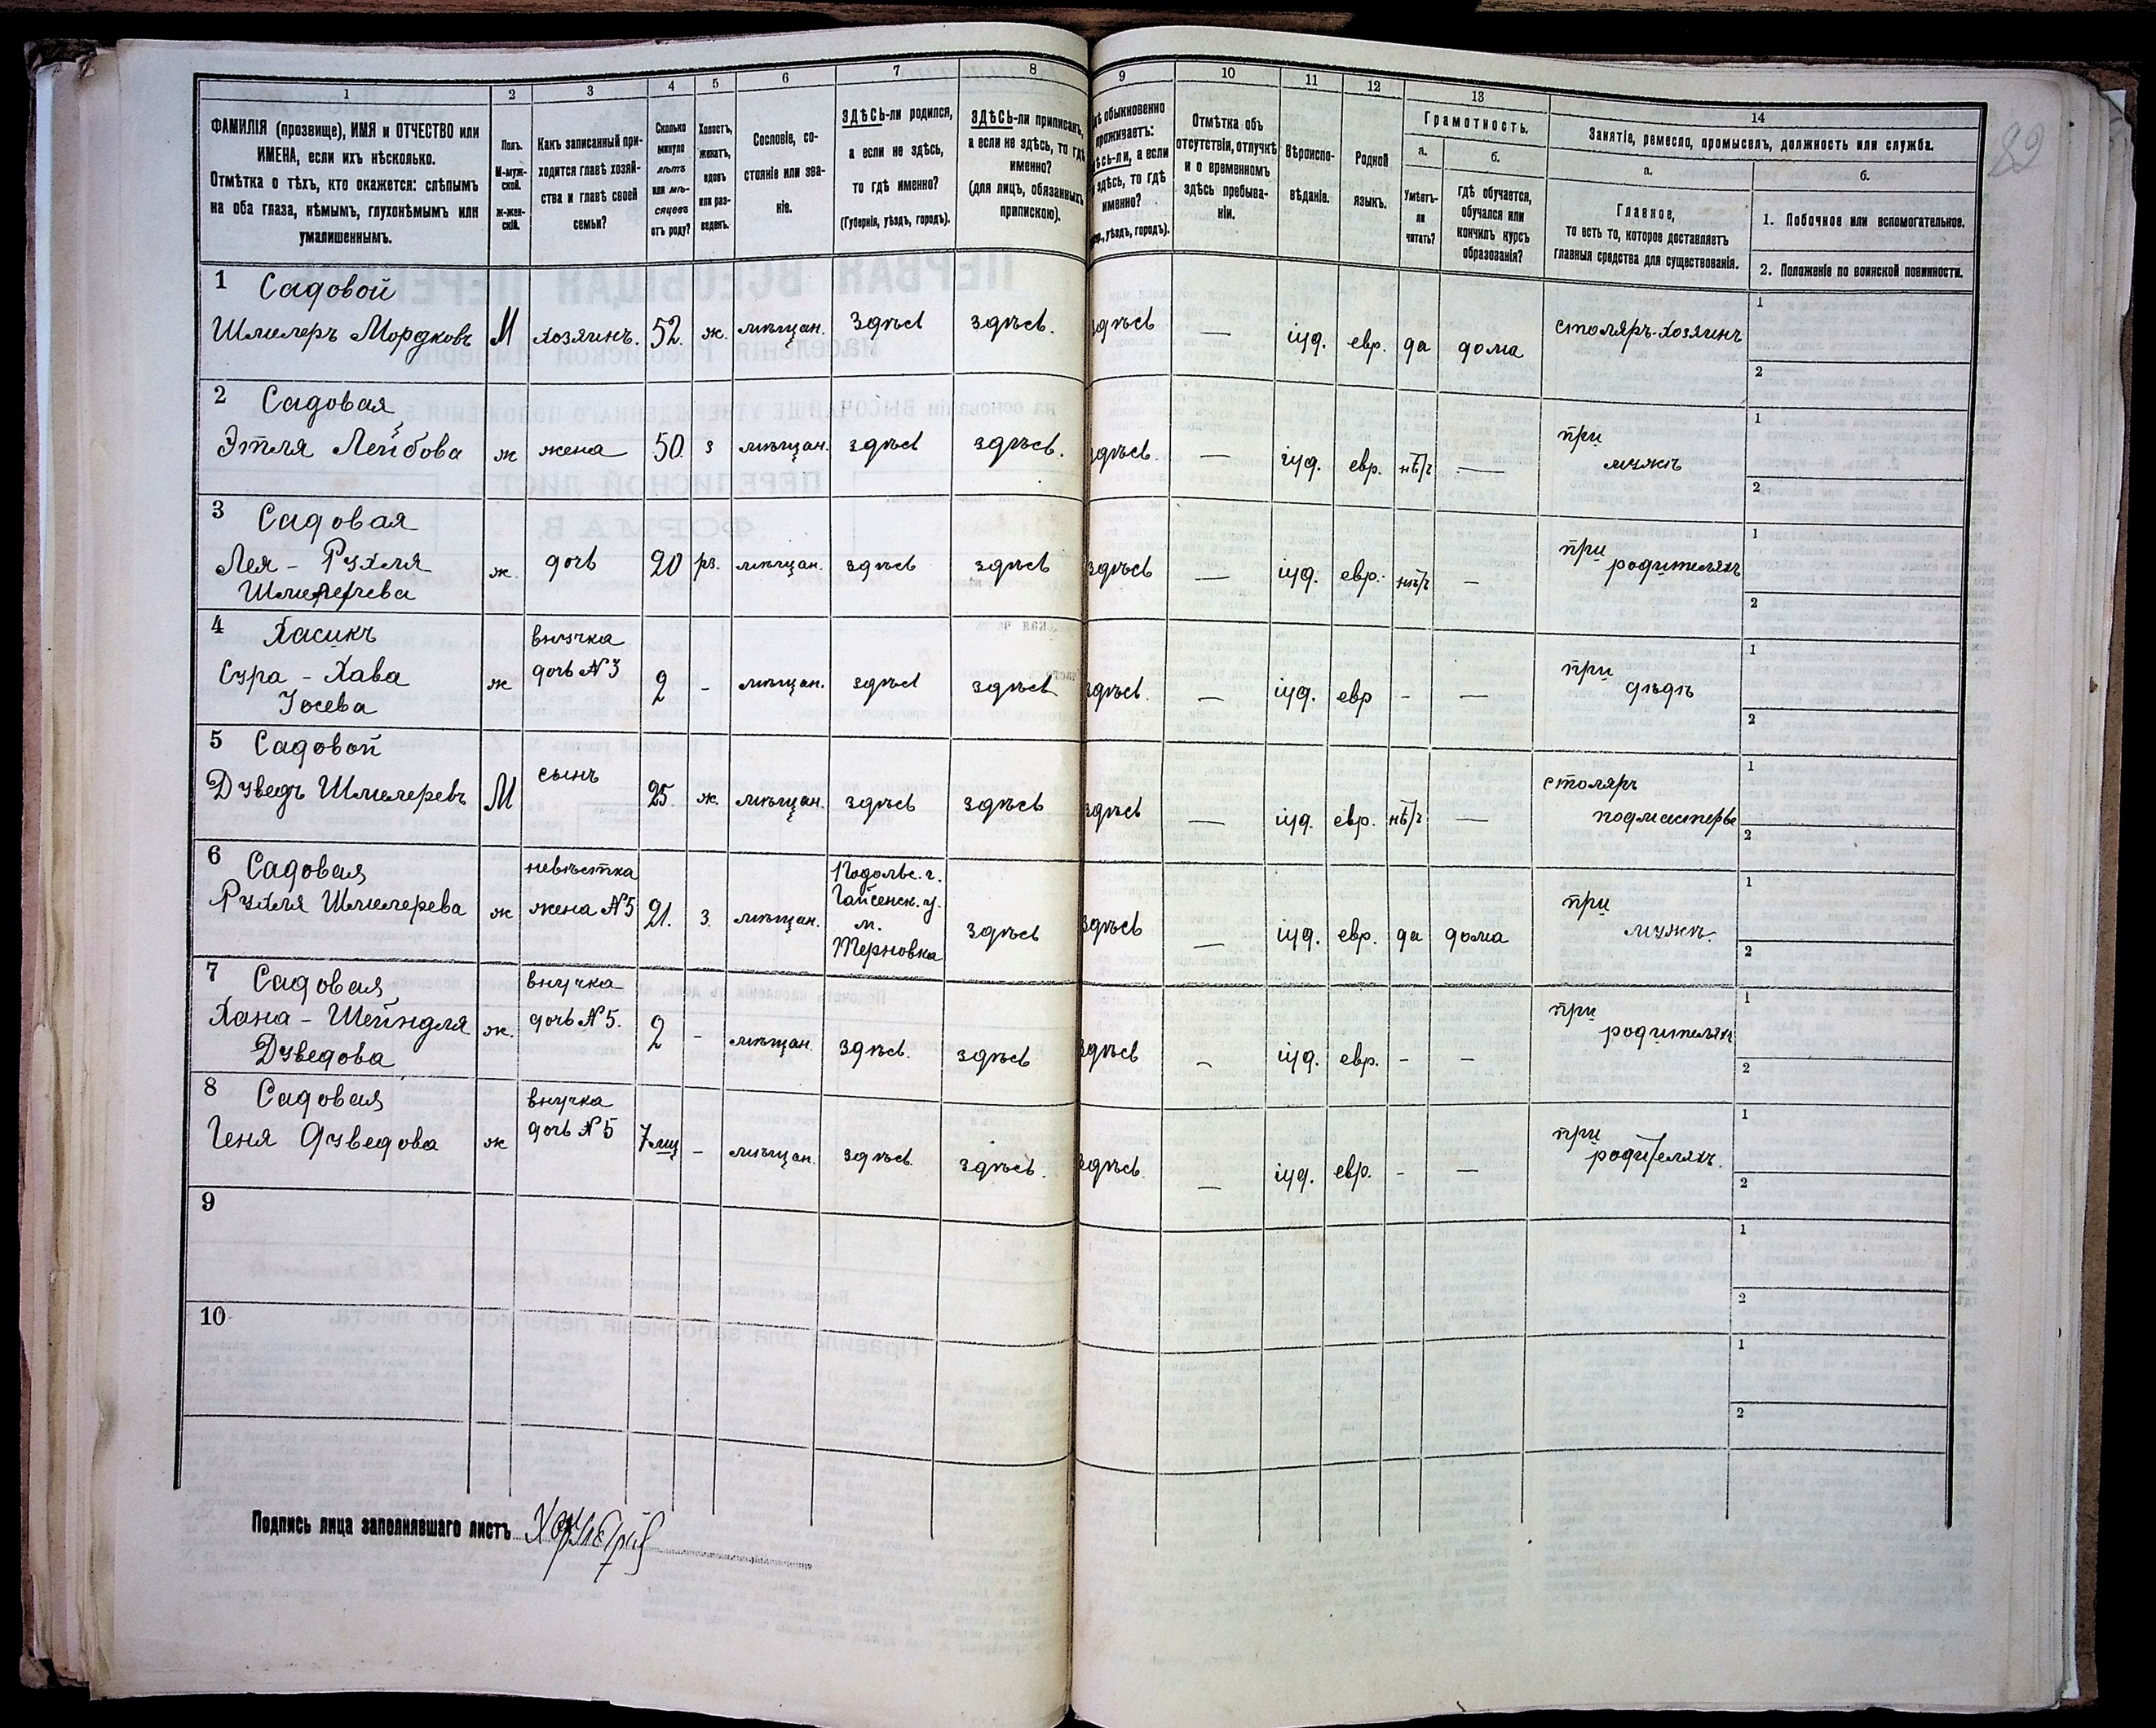 1
2
3
4
5
6
7
8
9
10
11
12
13
14
ФАМИЛІЯ (прозвище), ИМЯ и ОТЧЕСТВО или
ИМЕНА, если ихъ нѣсколько.
Отмѣтка о тѣхъ, кто окажется: слѣпымъ
на оба глаза, нѣмымъ, глухонѣмымъ или
умалишеннымъ.
Полъ.
М-муж-
ской.
ж-жен-
скій.
Какъ записанный при-
ходится главѣ хозяй-
ства и главѣ своей
семьи?
Сколько
минуло
лѣтъ
или мѣ-
сяцевъ
отъ роду?
Холостъ,
женатъ,
вдовъ
или раз-
веденъ.
Сословіе, со-
стояніе или зва-
ніе.
ЗДѢСЬ-ли родился,
а если не здѣсь,
то гдѣ именно?
(Губернія, уѣздъ, городъ).
ЗДѢСЬ-ли приписанъ,
а если не здѣсь, то гдѣ
именно?
(для лицъ, обязанныхъ
припискою).
обыкновенно
проживаетъ:
а если
здѣсь, то гдѣ
именно?
уѣздъ, городъ).
Отмѣтка объ
отсутствіи, отлучкѣ
и о временномъ
здѣсь пребыва-
ніи.
Вѣроиспо-
вѣданіе.
Родной
языкъ.
Грамотность.
а.
Умѣетъ-
ли
читать?
б.
гдѣ обучается,
обучался или
кончилъ курсъ
образованія?
Занятіе, ремесло, промыселъ, должность или служба.
а.
Главное,
то есть то, которое доставляетъ
главныя средства для существованія.
б.
1. Побочное или вспомогательное.
2. Положеніе по воинской повинности.
89
1 Садовой
Шмилеръ Мордковъ М хозяинъ. 52. ж. мѣщан. здѣсь здѣсь. здѣсь — іуд. евр. да дома столяръ-хозяинъ
1
2
2 Садовая
Этля Лейбова ж жена 50. з мѣщан. здѣсь здѣсь. здѣсь. — іуд. евр. нѣтъ — при
мужѣ
1
2
3 Садовая
Лея - Рухля ж. дочь 20 рз. мѣщан. здѣсь здѣсь здѣсь — іуд. евр. нѣтъ — при
родителяхъ
Шмилерева
1
2
4 Хасикъ внучка
Сура - Хава ж дочь №3 2 - мѣщан. здѣсь здѣсь здѣсь. — іуд. евр - — при
дѣдѣ
Іосева
1
2
5 Садовой
Дуведъ Шмилеревъ М сынъ 25. ж. мѣщан. здѣсь здѣсь здѣсь — іуд. евр. нѣтъ — столяръ
подмастерье
1
2
6 Садовая невѣстка
Рухля Шмилерева ж жена №5 21. з. мѣщан. Подольс. г.
Гайсенск. у.
м.
Терновка
здѣсь здѣсь — іуд. евр. да дома при
мужѣ.
1
2
7 Садовая внучка
Хана - Шейндля ж. дочь №5. 2 - мѣщан. здѣсь. здѣсь здѣсь — іуд. евр. - — при
родителяхъ
Дуведова
1
2
8 Садовая внучка
Геня Дуведова ж дочь №5 7 мц - мѣщан. здѣсь. здѣсь. здѣсь. — іуд. евр. - — при
родителяхъ.
1
2
9
1
2
10
1
2
Подпись лица заполнявшаго листъ